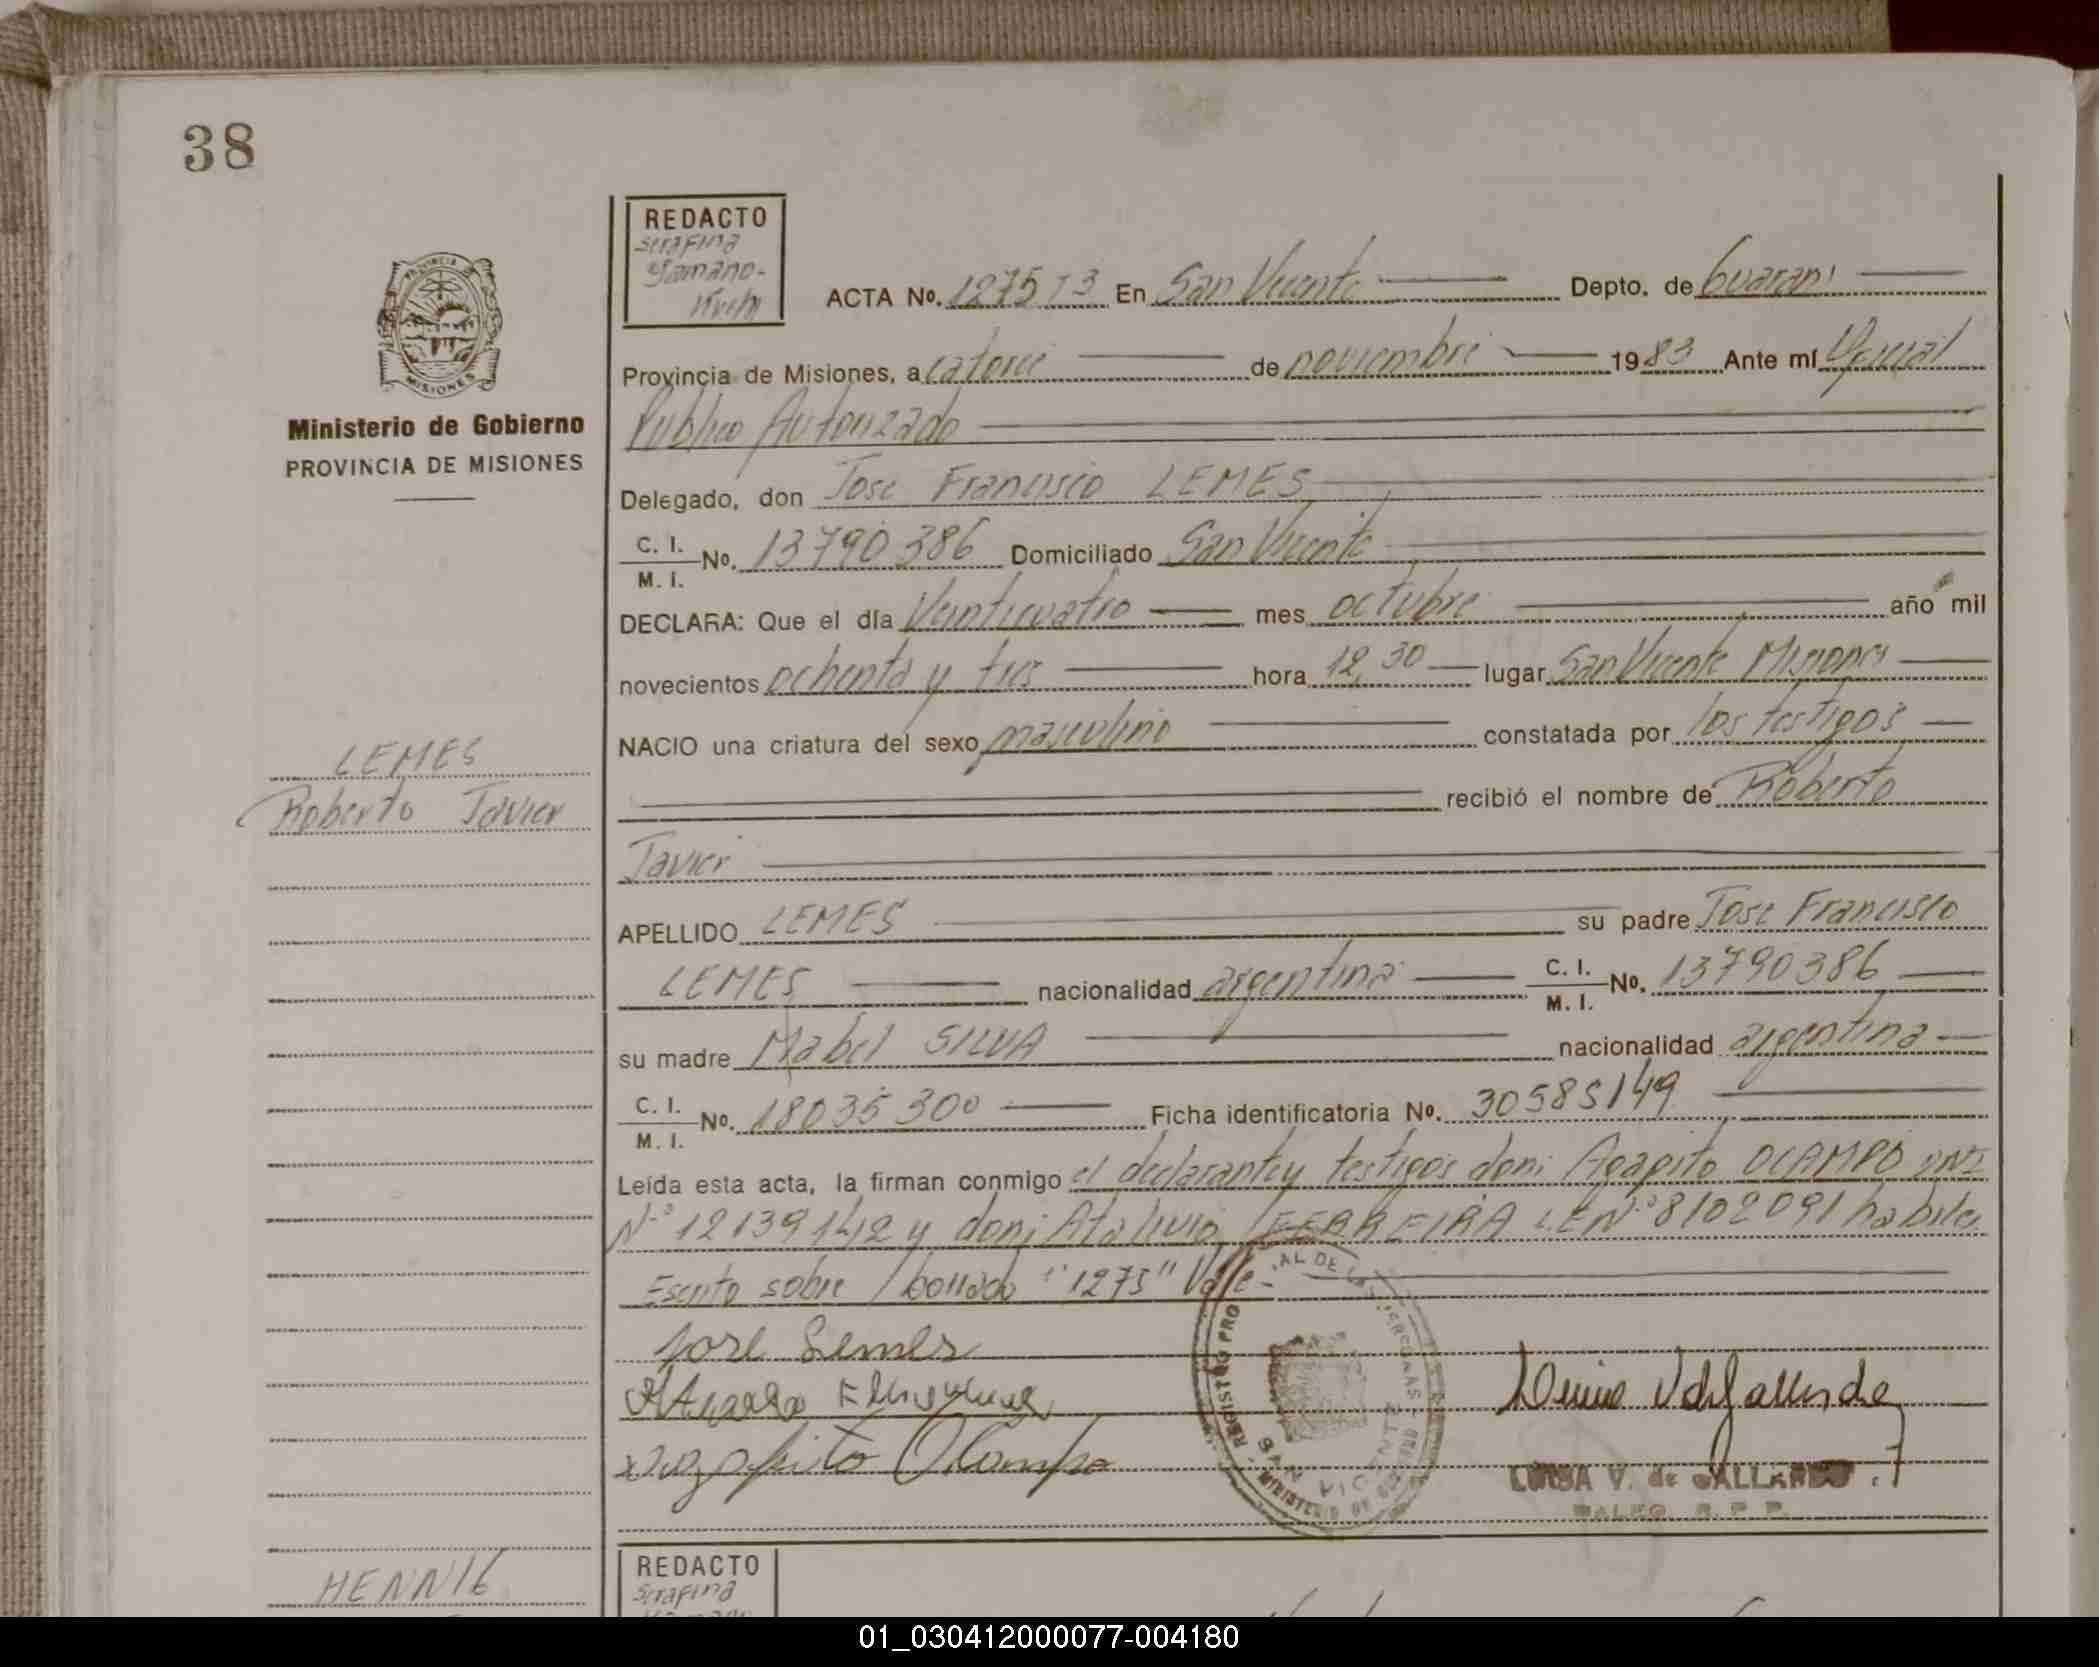 38
REDACTO
Serafina
ACTA No. 1275 T3 En San Vicente Depto. de Guarani
PROVINCIA DE
MISIONES
Ministerio de Gobierno
PROVINCIA DE MISIONES
Provincia de Misiones, a catorce de noviembre 1983 Ante mí Oficial
Publico Autorizado
Delegado, don Jose Francisco LEMES
C. I. / M. I. No. 13790386 Domiciliado San Vicente
DECLARA: Que el día Veinticuatro mes octubre año mil
novecientos ochenta y tres hora 12,30 lugar San Vicente Misiones
NACIO una criatura del sexo masculino constatada por los testigos
LEMES
Roberto Javier
recibió el nombre de Roberto
Javier
APELLIDO LEMES su padre Jose Francisco
LEMES nacionalidad argentina C. I. / M. I. No. 13790386
su madre Mabel SILVA nacionalidad argentina
C. I. / M. I. No. 18035300 Ficha identificatoria No. 30585149
Leída esta acta, la firman conmigo el declarante y testigos don: Agapito OCAMPO DNI
Nº 12139142 y don: Atalivio FERREIRA L.E Nº 8102091 habiles
Escrito sobre borrado "1275" Vale-
Jose Lemes
Agapito Ocampo
REGISTRO PRO AL DE LAS PERSONAS
SAN VICENTE
MINISTERIO DE GOBIERNO
LUISA V. de GALLARDO
R. P. P.
HENNIG
REDACTO
Serafina
01_030412000077-004180